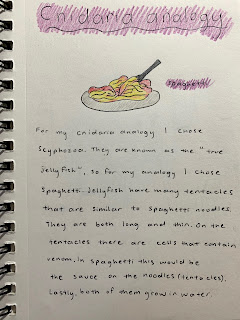 Cnidaria analogy
spaghetti!
For my cnidaria analogy I chose
scyphozoa. They are known as the "true
jellyfish", so for my analogy I chose
spaghetti. Jellyfish have many tentacles
that are similar to spaghetti noodles.
They are both long and thin. On the
tentacles there are cells that contain
venom, in spaghetti this would be
the sauce on the noodles (tentacles).
Lastly, both of them grow in water.